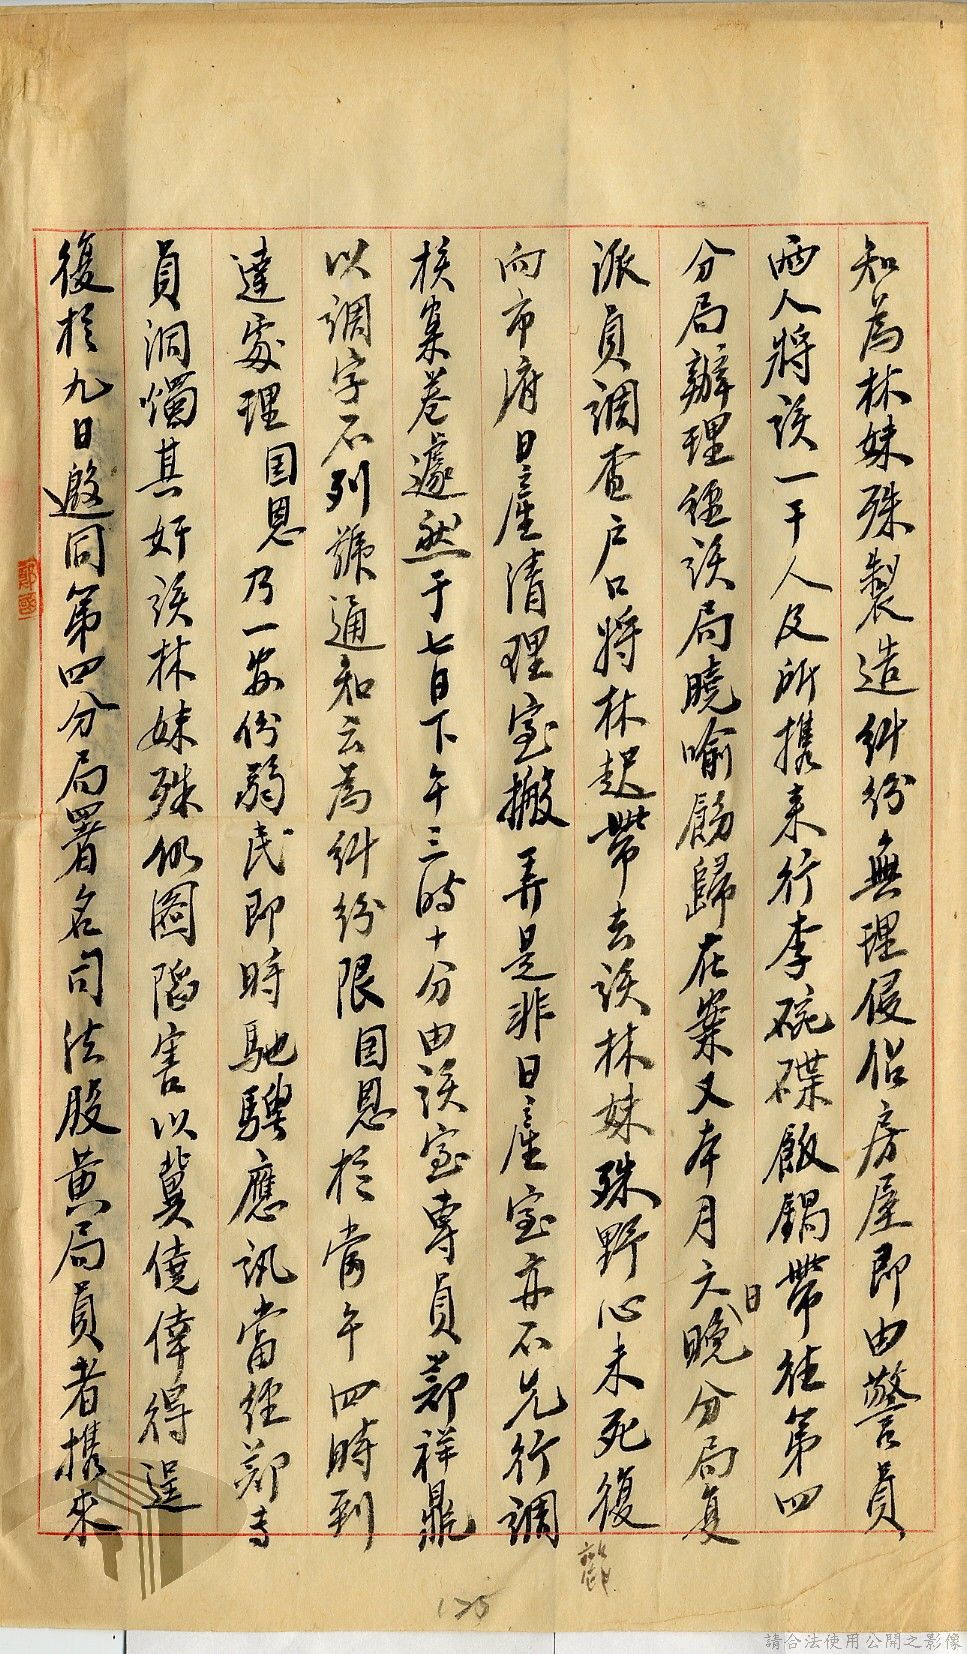 知為林妹殊製造糾紛無理侵佔房屋即由警員
兩人將該一干人及所携来行李碗碟飯鍋帶往第四
分局辦理經該局曉喻飭歸在案又本月六日晚分局复
派員調查户口将林起帶去该林妹殊野心未死復
向市府日產清理室搬弄是非日產室亦不先行調
核案卷遽然于七日下午三時十分由該室専員鄭祥鼎
以調字不列號通知云為糾紛限国恩於當午四時到
達處理国恩乃一安份弱民即時馳騁應訊當經鄭专
員洞燭其奸該林妹殊仍圖陷害以冀僥倖得逞
復於九日邀同第四分局署名司法股黄局員者携來
175
請合法使用公開之影像